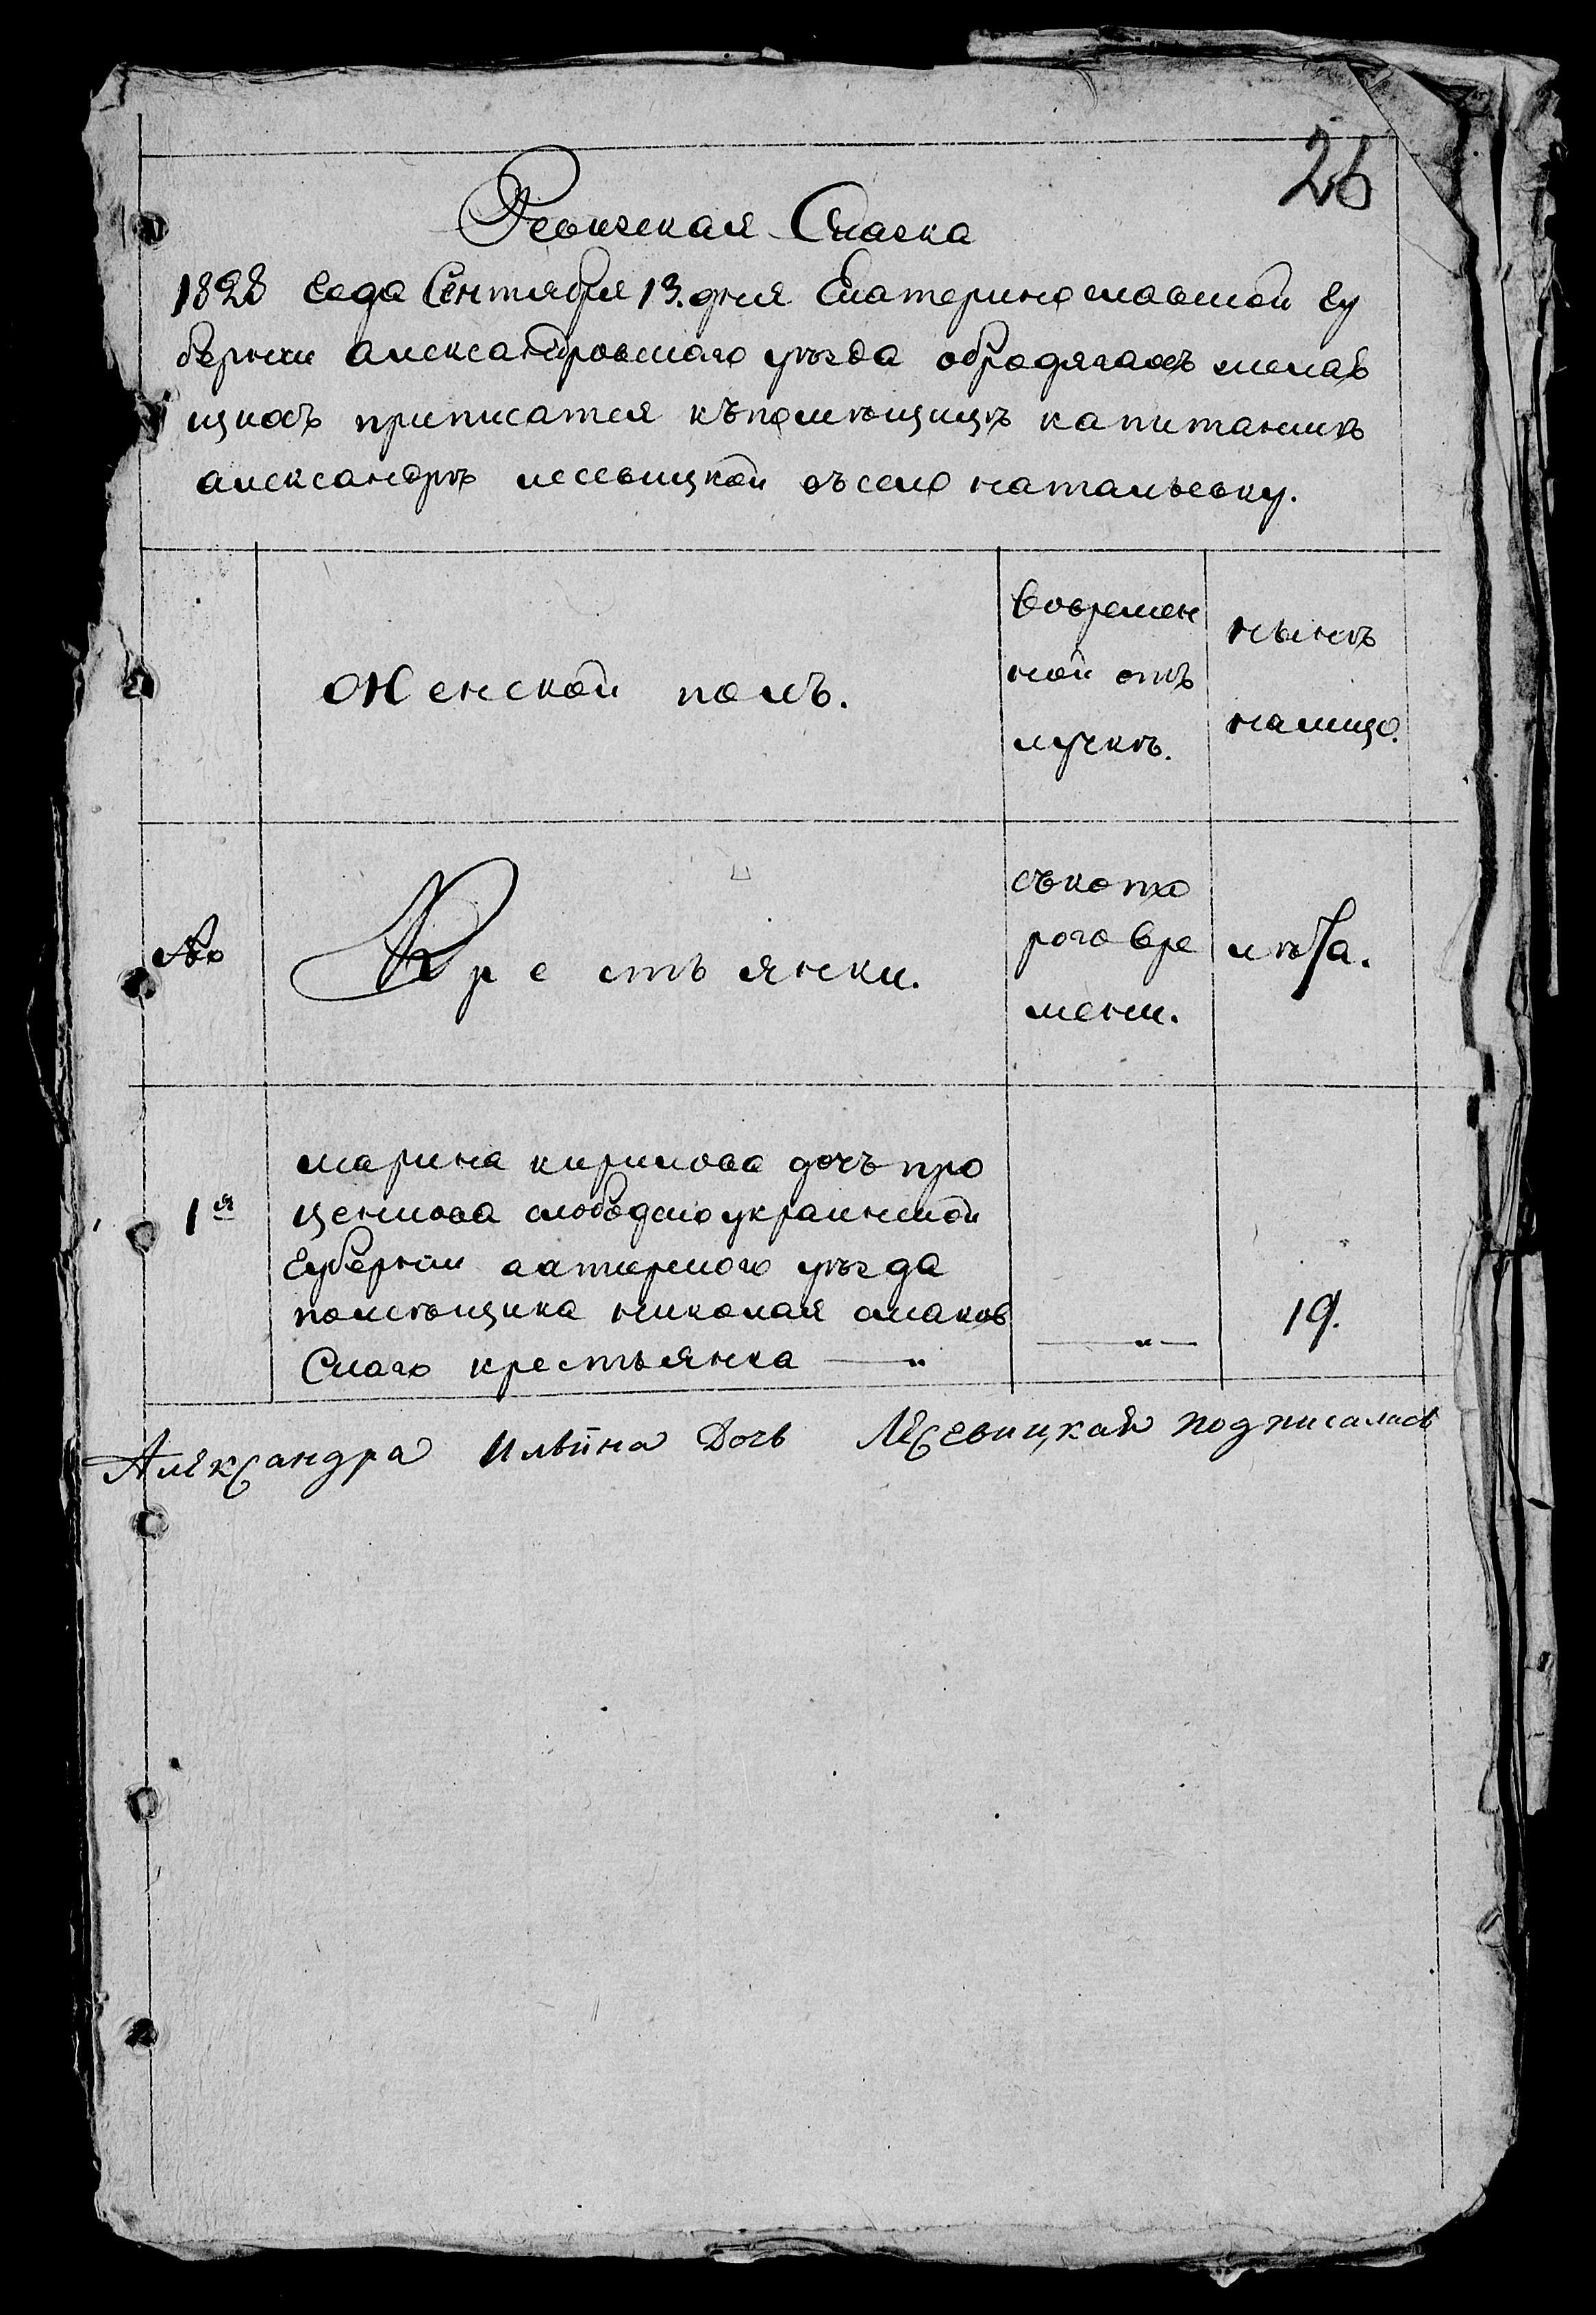 26
Ревизская Сказка
1828 года Сентября 13. дня Екатеринославской гу
бернии александровскаго уѣзда обродягахъ желаю
щихъ приписатся къпомѣщицѣ капитаншѣ
александрѣ лесевицкой въсело натальевку.
женской полъ.
вовремен
ной отъ
лучкѣ.
нынѣ
налицо.
№
Крестьянки.
съкото
рого вре
мени.
лѣта.
1я
марина кирилова дочь про
ценкова слободскоукраинской
губернии ахтирского уѣзда
помѣщика николая
Скаго крестьянка — „
— „ —
19.
Александра Ильина Дочь Лесевицкая подписалась